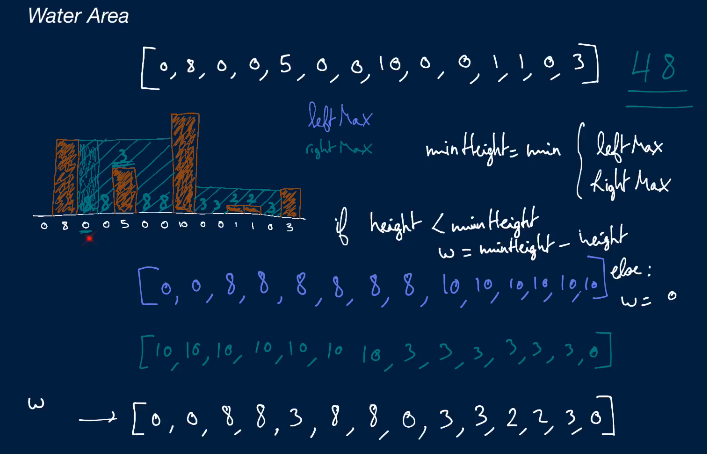 Water Area
[0, 8, 0, 0, 5, 0, 0, 10, 0, 0, 1, 1, 0, 3] 48
leftMax
rightMax
minHeight = min { leftMax
RightMax
3
8 8 8 8 3 3 2 2 3
0 8 0 0 5 0 0 10 0 0 1 1 0 3
if height < minHeight
w = minHeight - height
else:
w = 0
[0, 0, 8, 8, 8, 8, 8, 8, 10, 10, 10, 10, 10, 10]
[10, 10, 10, 10, 10, 10, 10, 3, 3, 3, 3, 3, 3, 0]
w → [0, 0, 8, 8, 3, 8, 8, 0, 3, 3, 2, 2, 3, 0]